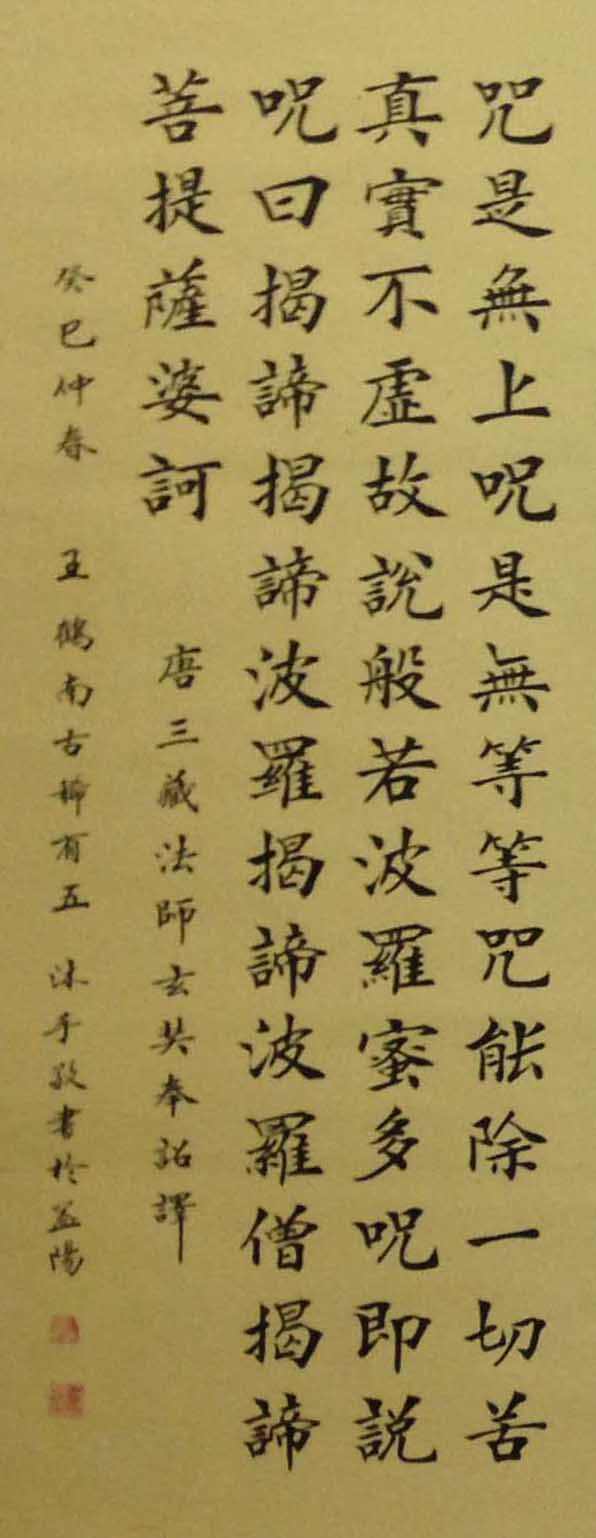 咒是無上呪是無等等咒能除一切苦
真實不虛故説般若波羅蜜多呪即説
呪曰揭諦揭諦波羅揭諦波羅僧揭諦
菩提薩婆訶
唐三藏法師玄奘奉詔譯
癸巳仲春 王鶴南古稀有五 沐手敬書於益陽